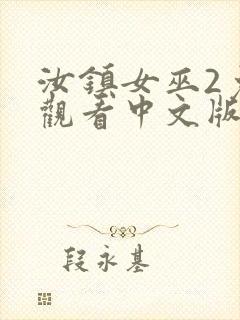 汝鎮女巫2
觀看中文版
段永基